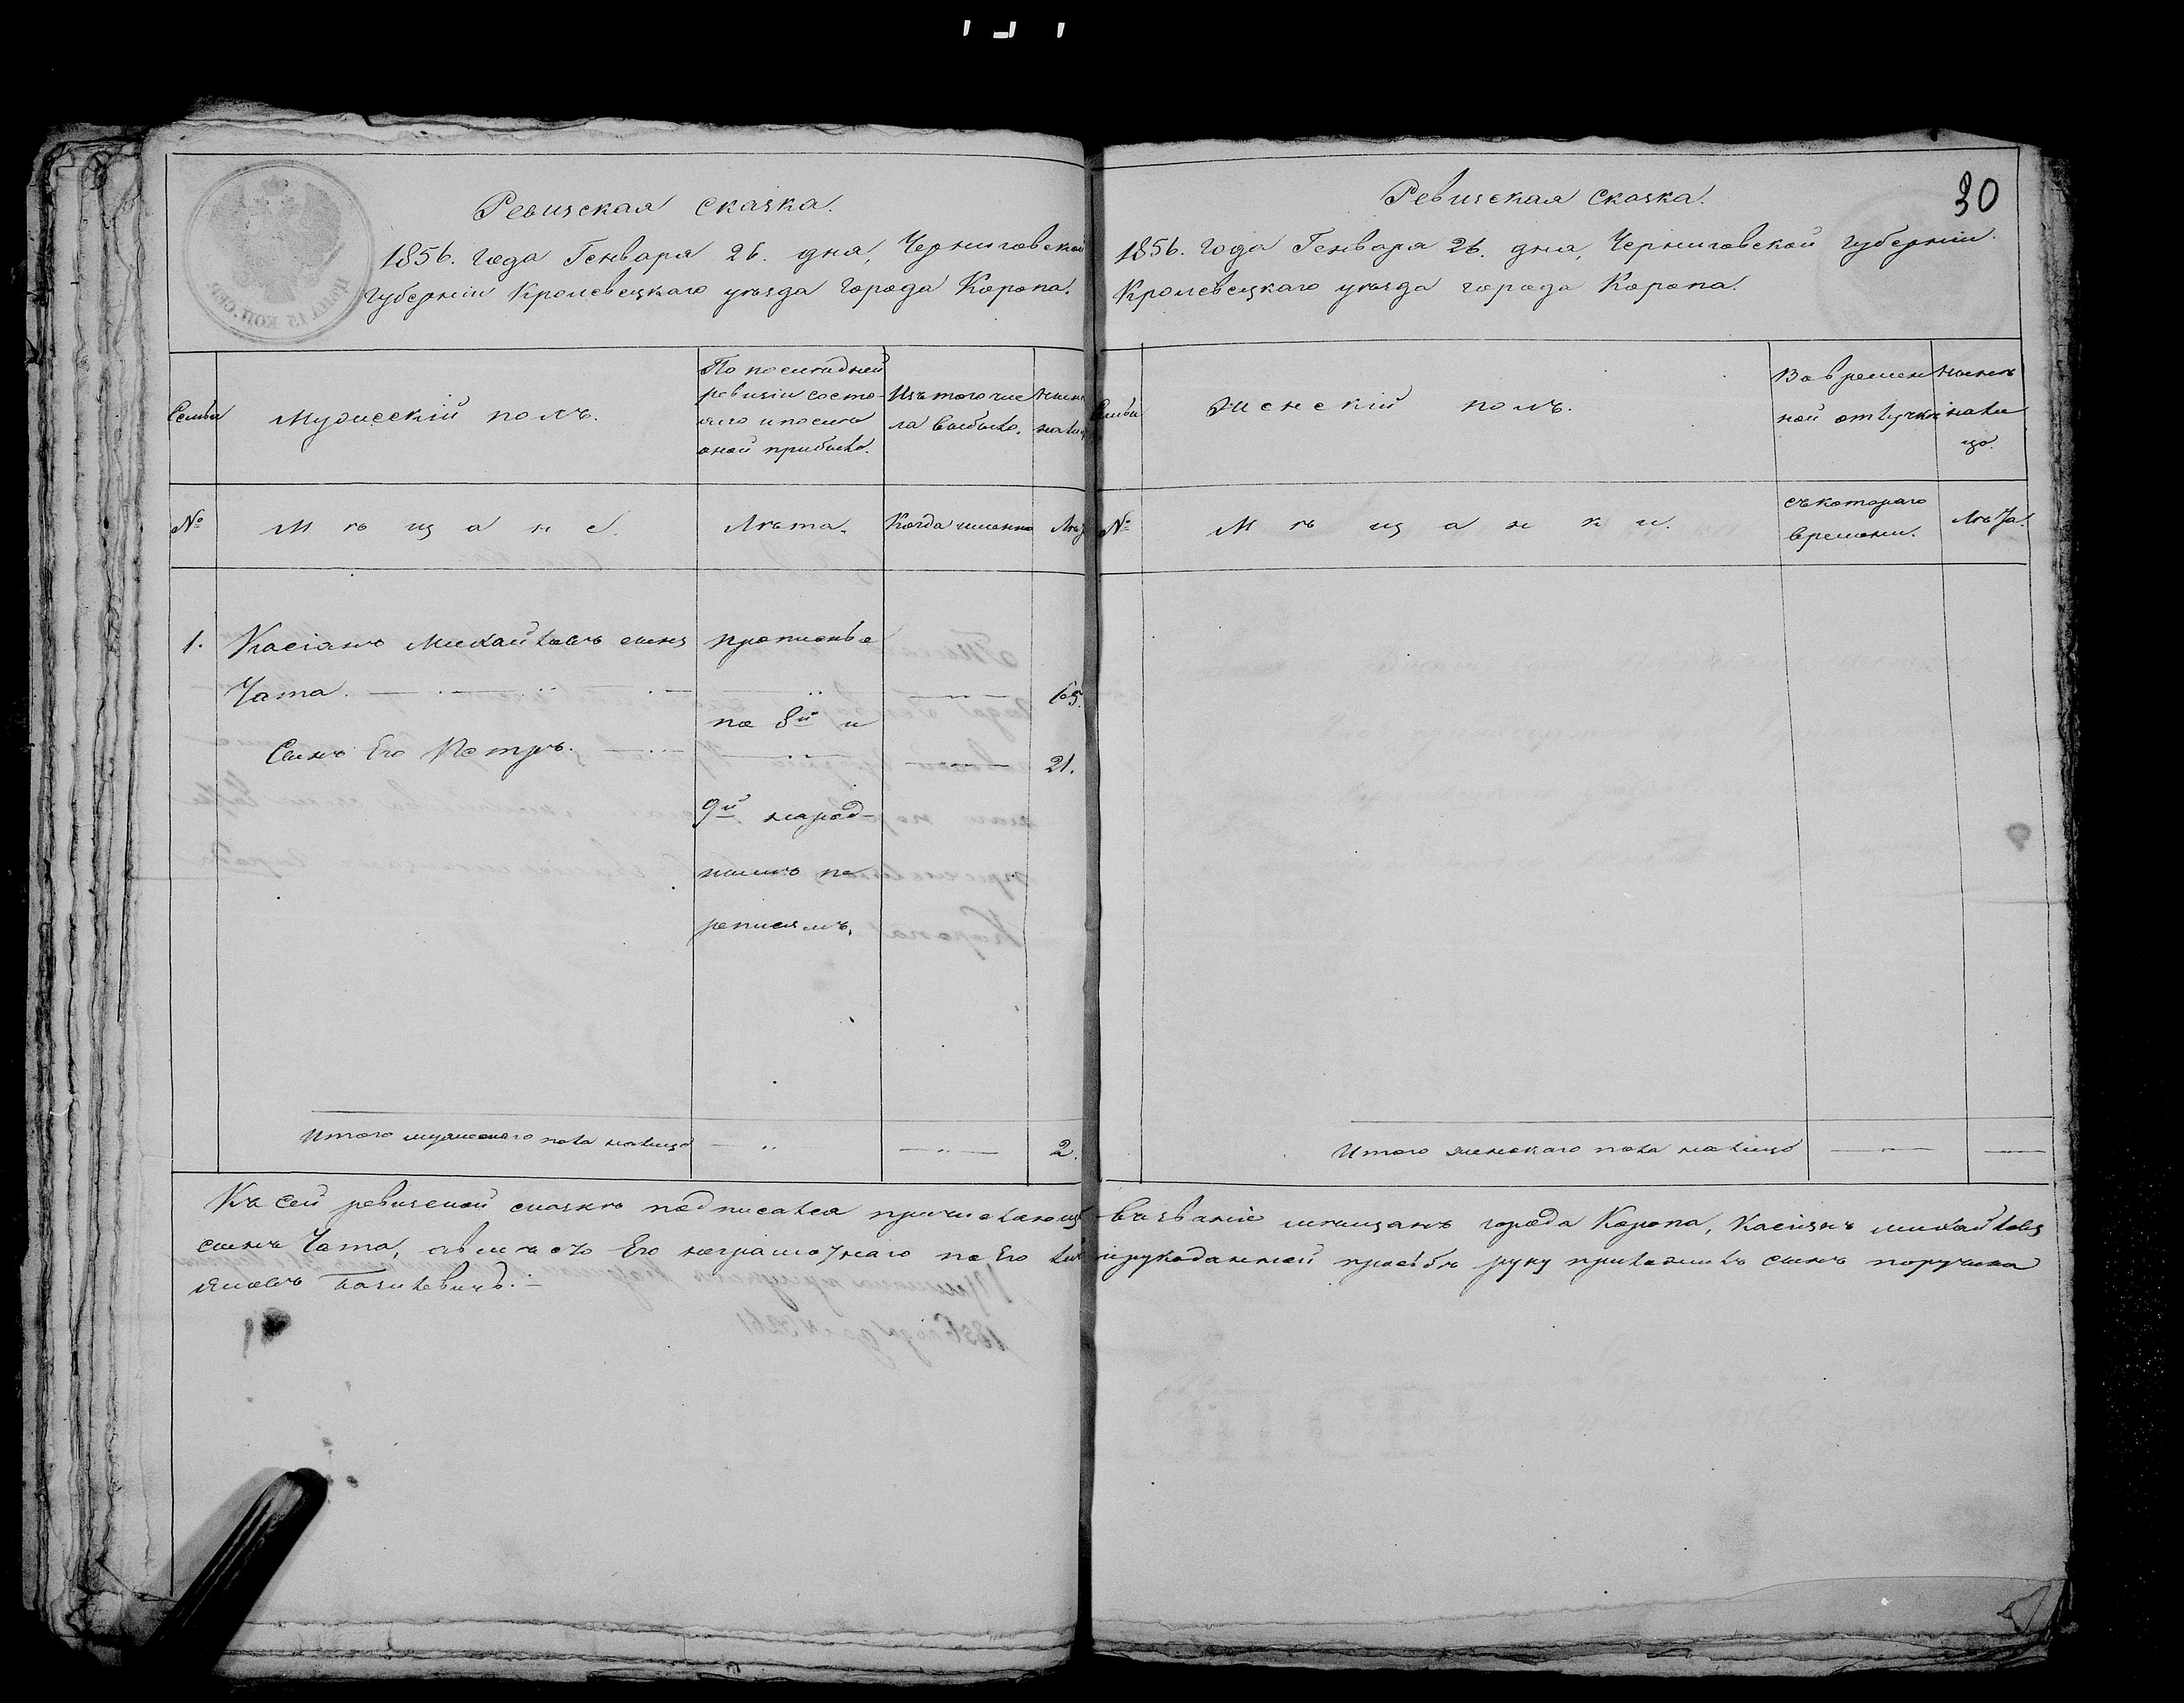 Ревизская сказка.
1856. года Генваря 26. дня, Черниговской
Губерніи Кролевецкаго уѣзда города Коропа.
Семьи
Мужескій полъ.
По последней
ревизіи состо-
яло и после
оной прибыло.
Изъ того чис
ла выбыло.
№
Мѣщане.
Лѣта.
Когда именно
1. Касіянъ Михайловъ сынъ
Чата.
65.
Сынъ Его Петръ.
21.
прописные
по 8й и
9й народ-
нымъ пе
реписямъ.
Итого мужескаго пола налицо
2.
30
Ревизская Сказка.
1856. года Генваря 26. дня, Черниговской губерніи.
Кролевецкаго уѣзда города Коропа.
Семьи
Женскій полъ.
Во времен
ной отлучке
ныне
нали
цо.
№
Мѣщанки.
съ котораго
времени.
Лѣта.
Итого женскаго пола налицо
Къ сей ревизской сказкѣ подписался въ званіе мещанъ города Коропа, Касіянъ Михайловъ
сынъ Чата, а вместо Его неграмотнаго по Его рукоданной прозбѣ руку приложилъ сынъ